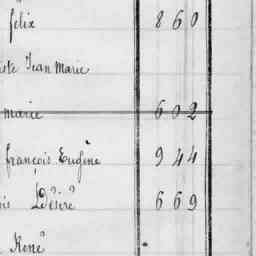 felix 860
iste Jean Marie
marie 602
françois Eugène 944
is Désiré 669
René